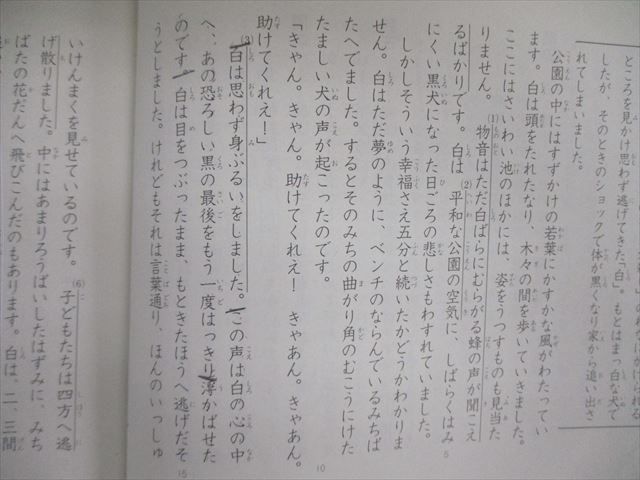 ところを見かけ思わず逃げてきた「白」。もとはまっ白な犬で
したが、そのときのショックで体が黒くなり家から追い出さ
れてしまいました。
公園の中にはすずかけの若葉にかすかな風がわたってい
ます。白は頭をたれたなり、木々の間を歩いていきました。
ここにはさいわい池のほかには、姿をうつすものも見当た
りません。(1)物音はただ白ばらにむらがる蜂の声が聞こえ
るばかりです。白は(2)平和な公園の空気に、しばらくはみ
にくい黒犬になった日ごろの悲しさもわすれていました。
5
しかしそういう幸福さえ五分と続いたかどうかわかりま
せん。白はただ夢のように、ベンチのならんでいるみちば
たへでました。するとそのみちの曲がり角のむこうにけた
たましい犬の声が起こったのです。
「きゃん。きゃん。助けてくれえ！　きゃあん。きゃあん。
10
助けてくれえ！」
(3)白は思わず身ぶるいをしました。この声は白の心の中
へ、あの恐ろしい黒の最後をもう一度はっきり浮かばせた
のです。白は目をつぶったまま、もときたほうへ逃げだそ
うとしました。けれどもそれは言葉通り、ほんのいっしゅ
15
いけんまくを見せているのです。(6)子どもたちは四方へ逃
げ散りました。中にはあまりろうばいしたはずみに、みち
ばたの花だんへ飛びこんだのもあります。白は、二、三間